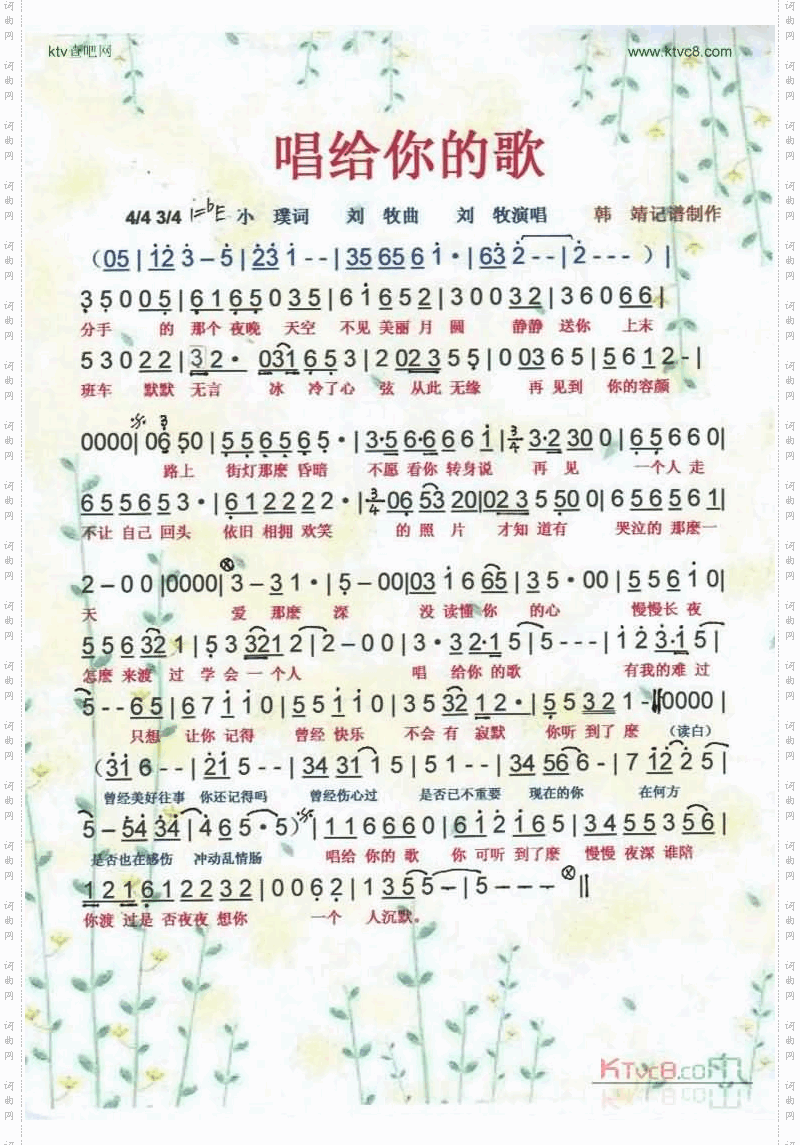 ktv查吧网 www.ktvc8.com
唱给你的歌
4/4 3/4 1=bE 小 璞词 刘 牧曲 刘 牧演唱 韩 靖记谱制作
（05 | 12 3 – 5 | 23 1 - - | 35 65 6 1 · | 63 2 - - | 2 - - - ）|
3 5 0 0 5 | 6 1 6 5 0 3 5 | 6 1 6 5 2 | 3 0 0 3 2 | 3 6 0 6 6 |
分手 的 那个 夜晚 天空 不见 美丽 月 圆 静静 送你 上末
5 3 0 2 2 | 3 2 · 031 6 5 3 | 2 02 3 5 5 | 0 03 6 5 | 5 6 1 2 - |
班车 默默 无言 冰 冷了心 弦 从此 无缘 再 见到 你的容颜
0000 | 06 50 | 5 5 6 5 6 5 · | 3·5 6·6 6 6 1 | 3/4 3·2 30 0 | 6 5 6 6 0 |
路上 街灯那麽 昏暗 不愿 看你 转身说 再 见 一个人 走
6 5 5 6 5 3 · | 6 1 2 2 2 2 · | 3/4 06 53 20 | 02 3 5 50 0 | 6 5 6 5 6 1 |
不让 自己 回头 依旧 相拥 欢笑 的 照 片 才知 道有 哭泣的 那麽一
2 – 0 0 | 0000 | 3 – 3 1 · | 5 – 0 0 | 03 1 6 65 | 3 5 · 00 | 5 5 6 1 0 |
天 爱 那麽 深 没 读懂 你 的心 慢慢长 夜
5 5 6 32 1 | 5 3 321 2 | 2 – 0 0 | 3 · 3 2·1 5 | 5 - - - | 1 2 3·1 5 |
怎麽 来渡 过 学 会 一 个人 唱 给你 的歌 有我的 难 过
5 - - 6 5 | 6 7 1 1 0 | 5 5 1 1 0 | 3 5 32 12 · | 5 5 3 2 1 - 0000 |
只想 让你 记得 曾经 快乐 不会 有 寂默 你听 到了 麽 （读白）
（31 6 - - | 21 5 - - | 34 31 1 5 | 5 1 - - | 34 56 6 - | 7 12 2 5 |
曾经美好往事 你还记得吗 曾经伤心过 是否已不重要 现在的你 在何方
5 – 54 34 | 4 6 5 · 5 ）| 1 1 6 6 6 0 | 6 1 2 1 6 5 | 3 4 5 5 3 56 |
是否也在感伤 冲动乱情肠 唱给 你的 歌 你 可听 到了麽 慢慢 夜深 谁陪
1 2 1 6 1 2 2 3 2 | 0 0 6 2 | 1 3 5 5 – | 5 - - - ‖
你渡 过是 否夜夜 想你 一个 人沉默。
KTvc8.com